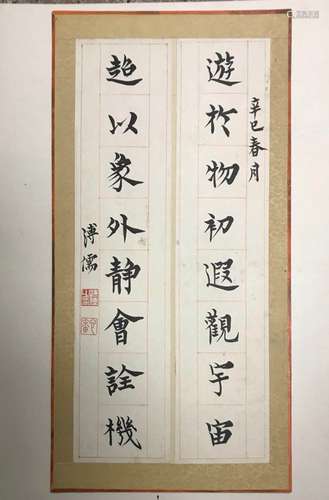 辛巳春月
遊於物初遐觀宇宙
超以象外靜會詮機
溥儒